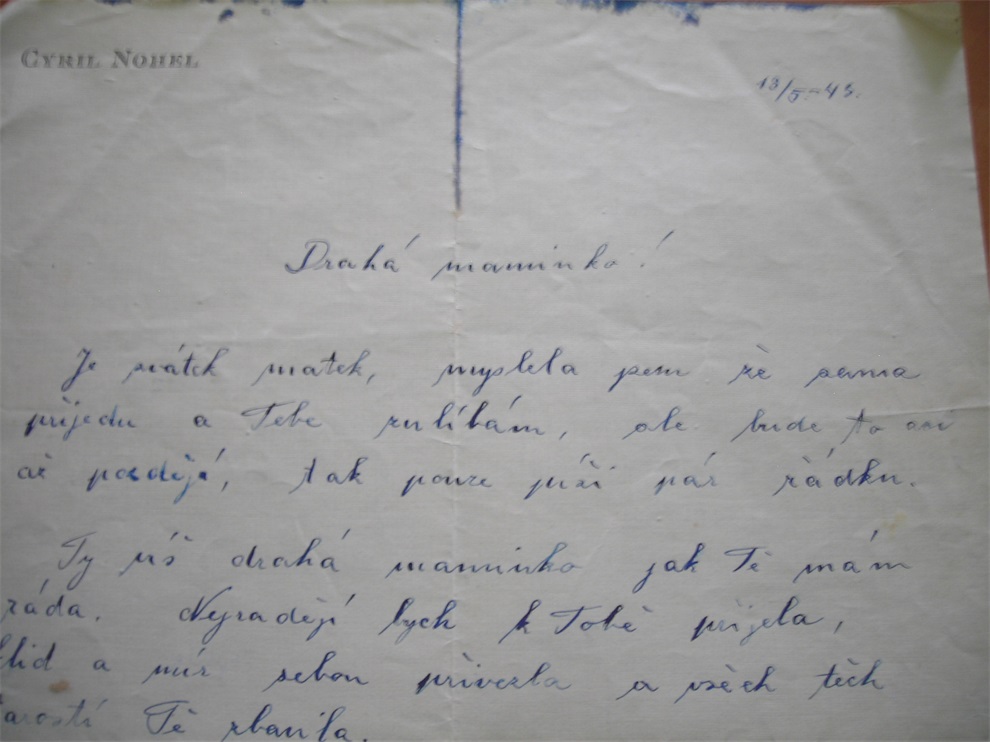 CYRIL NOHEL
13/5.-43.
Drahá maminko!
Je svátek matek, myslela jsem že sama
přijedu a Tebe zulíbám, ale bude to asi
až pozdějí, tak pouze píši pár řádku.
Ty víš drahá maminko jak Tě mám
ráda. Nejradějí bych k Tobě prijela,
klid a mír sebou přivezla a všech těch
starostí Tě zbavila.